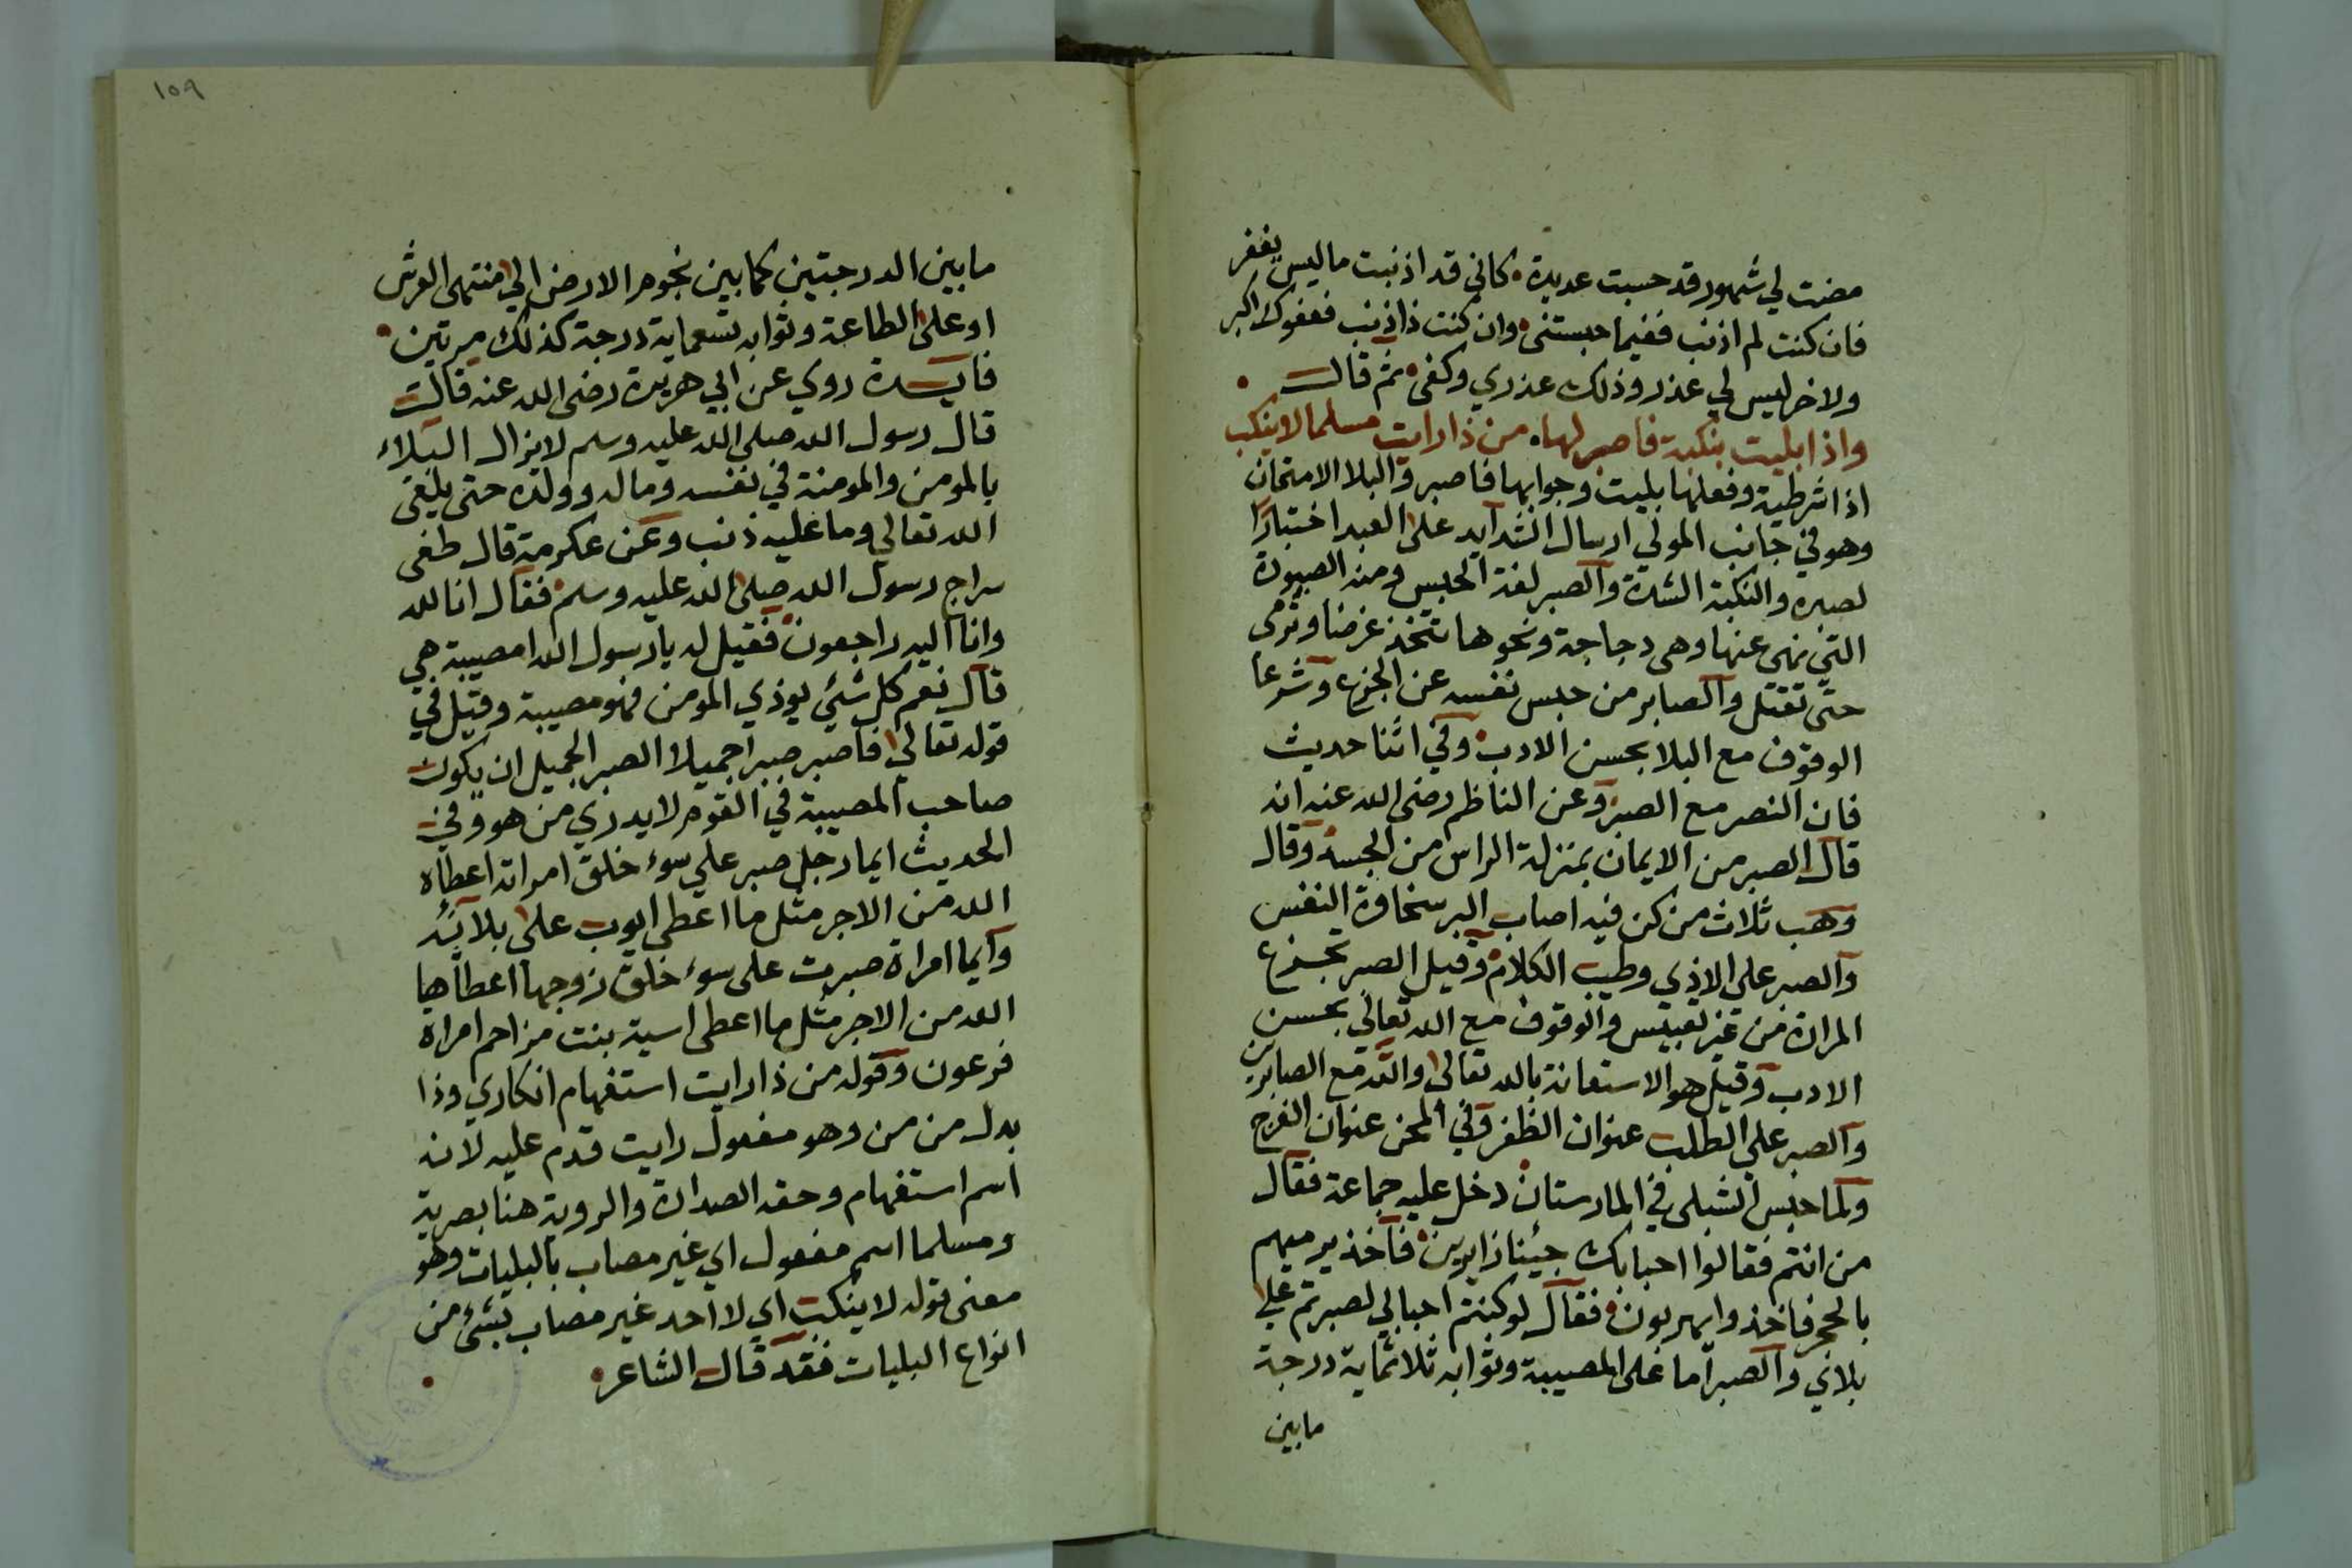 مضت لي شهور قد حسبت عديدة • كاني قد اذنبت ما ليس يغفر
فان كنت لم اذنب ففيما حبستني • وان كنت ذا ذنب فعفوك اكبر
ولاخر ليس لي عذر وذلك عذري وكفى • ثم قال •
واذا بليت بنكبة فاصبر لها • من ذا رايت مسلما لا ينكب
اذا شرطية وفعلها بليت وجوابها فاصبر والبلا الامتحان
وهو في جانب المولي ارسال الشدايد على العبد اختبارا
لصبره والنكبة الشدة والصبر لغة الحبس ومنه المصبورة
التي نهى عنها وهي دجاجة ونحوها تتخذ غرضا وترمى
حتى تقتل والصابر من حبس نفسه عن الجزع وشرعا
الوقوف مع البلا بحسن الادب • وفي اثنا حديث
فان النصر مع الصبر وعن الناظم رضى الله عنه انه
قال الصبر من الايمان بمنزلة الراس من الجسد وقال
وهب ثلاث من كن فيه اصاب البر سخاوة النفس
والصبر على الاذي وطيب الكلام • وقيل الصبر تجرع
المرارة من غير تعبيس والوقوف مع الله تعالي بحسن
الادب وقيل هو الاستعانة بالله تعالى والله مع الصابرين
والصبر علي الطلب عنوان الظفر وفي المحن عنوان الفرج
ولما حبس الشبلى في المارستان • دخل عليه جماعة فقال
من انتم فقالوا احبابك جيئنا زايرين • فاخذ يرميهم
بالحجر فاخذوا يهربون • فقال لو كنتم احبابي لصبرتم على
بلاي والصبر اما على المصيبة وثوابه ثلاثماية درجة
مابين
١٥٩
مابين الدرجتين كما بين نجوم الارض الي منتهى العرش
او على الطاعة وثوابه تسعماية درجة كذلك مرتين •
فايدة روي عن ابي هريرة رضى الله عنه قال
قال رسول الله صلى الله عليه وسلم لا يزال البلاء
بالمومن والمومنة في نفسه وماله وولده حتى يلقى
الله تعالي وما عليه ذنب وعن عكرمة قال طغى
سراج رسول الله صلى الله عليه وسلم • فقال انا لله
وانا اليه راجعون • فقيل له يا رسول الله امصيبة هي
قال نعم كل شئي يوذي المومن فهو مصيبة وقيل في
قوله تعالي فاصبر صبرا جميلا الصبر الجميل ان يكون
صاحب المصيبة في القوم لا يدري من هو وفي
الحديث ايما رجل صبر علي سوء خلق امراته اعطاه
الله من الاجر مثل ما اعطى ايوب على بلائه
وايما امراة صبرت على سوء خلق زوجها اعطاها
الله من الاجر مثل ما اعطى اسية بنت مزاحم امراة
فرعون وقوله من ذا رايت استفهام انكاري وذا
بدل من من وهو مفعول رايت قدم عليه لانه
اسم استفهام وحقه الصدارة والروية هنا بصرية
ومسلما اسم مفعول اي غير مصاب بالبليات وهو
معنى قوله لا ينكب اي لا احد غير مصاب بشئ من
انواع البليات فقد قال الشاعر • •